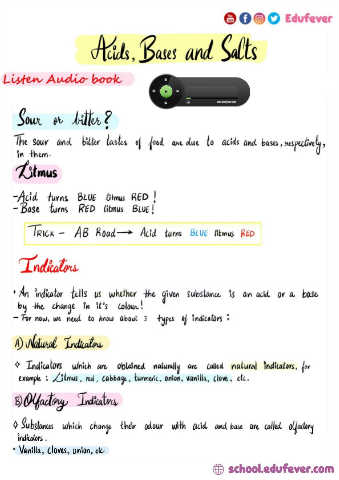 Edufever
Acids, Bases and Salts
Listen Audio book
Sour or bitter?
The sour and bitter tastes of food are due to acids and bases, respectively,
in them.
Litmus
-Acid turns BLUE litmus RED !
-Base turns RED litmus BLUE!
TRICK - AB Road → Acid turns BLUE litmus RED
Indicators
• An indicator tells us whether the given substance is an acid or a base
by the change in it's colour!
- For now, we need to know about 3 types of indicators :
A) Natural Indicators
◇ Indicators which are obtained naturally are called natural indicators, for
example : Litmus, red, cabbage, turmeric, onion, vanilla, clove, etc.
B) Olfactory Indicators
◇ Substances which change their odour with acid and base are called olfactory
indicators.
• Vanilla, cloves, onion, etc
school.edufever.com